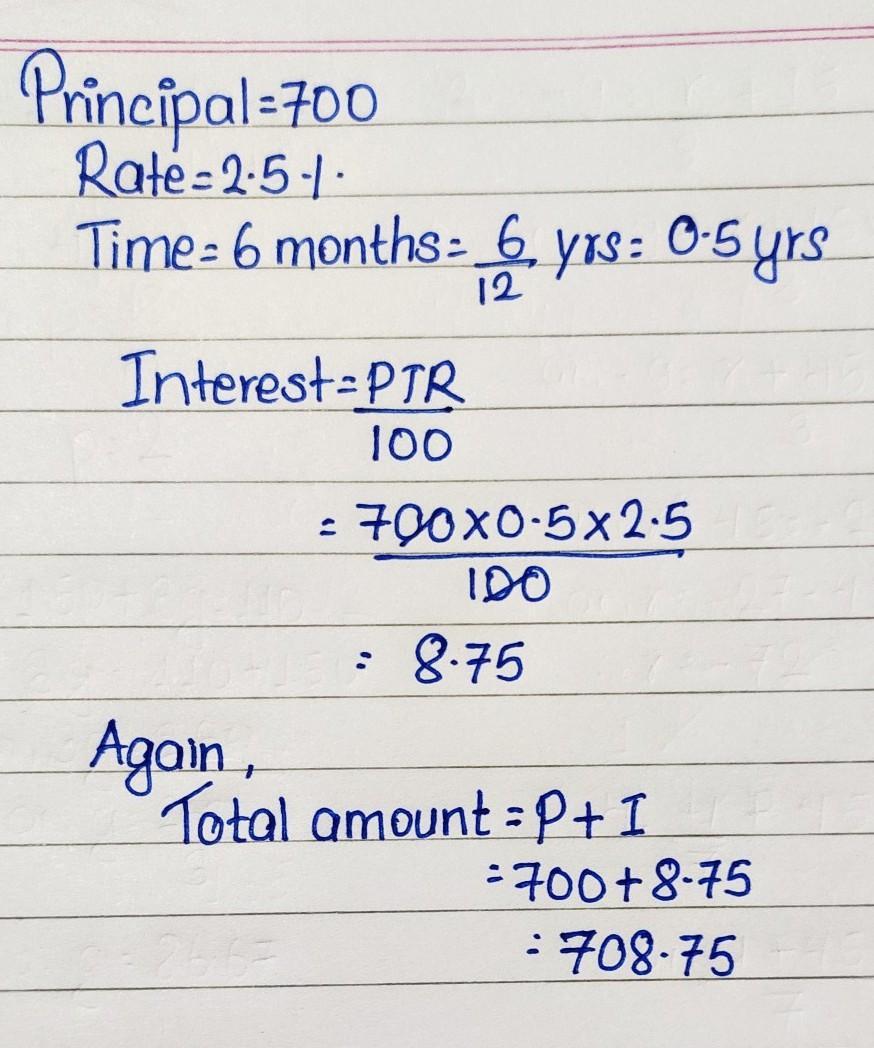 Principal=700
Rate=2.5%
Time=6 months=6/12 yrs=0.5yrs
Interest=PTR/100
=700×0.5×2.5/100
=8.75
Again,
Total amount=P+I
=700+8.75
=708.75